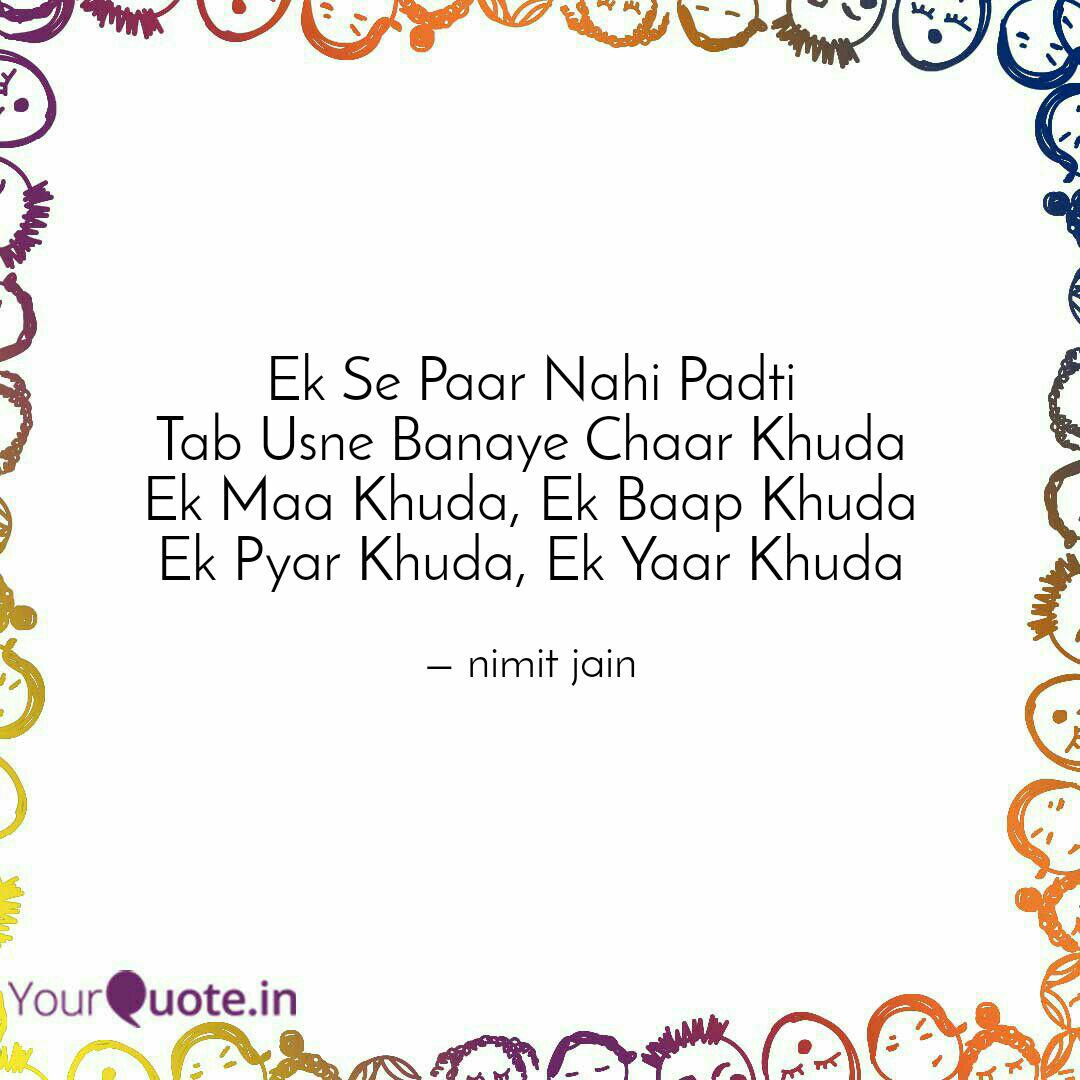 Ek Se Paar Nahi Padti
Tab Usne Banaye Chaar Khuda
Ek Maa Khuda, Ek Baap Khuda
Ek Pyar Khuda, Ek Yaar Khuda
– nimit jain
YourQuote.in